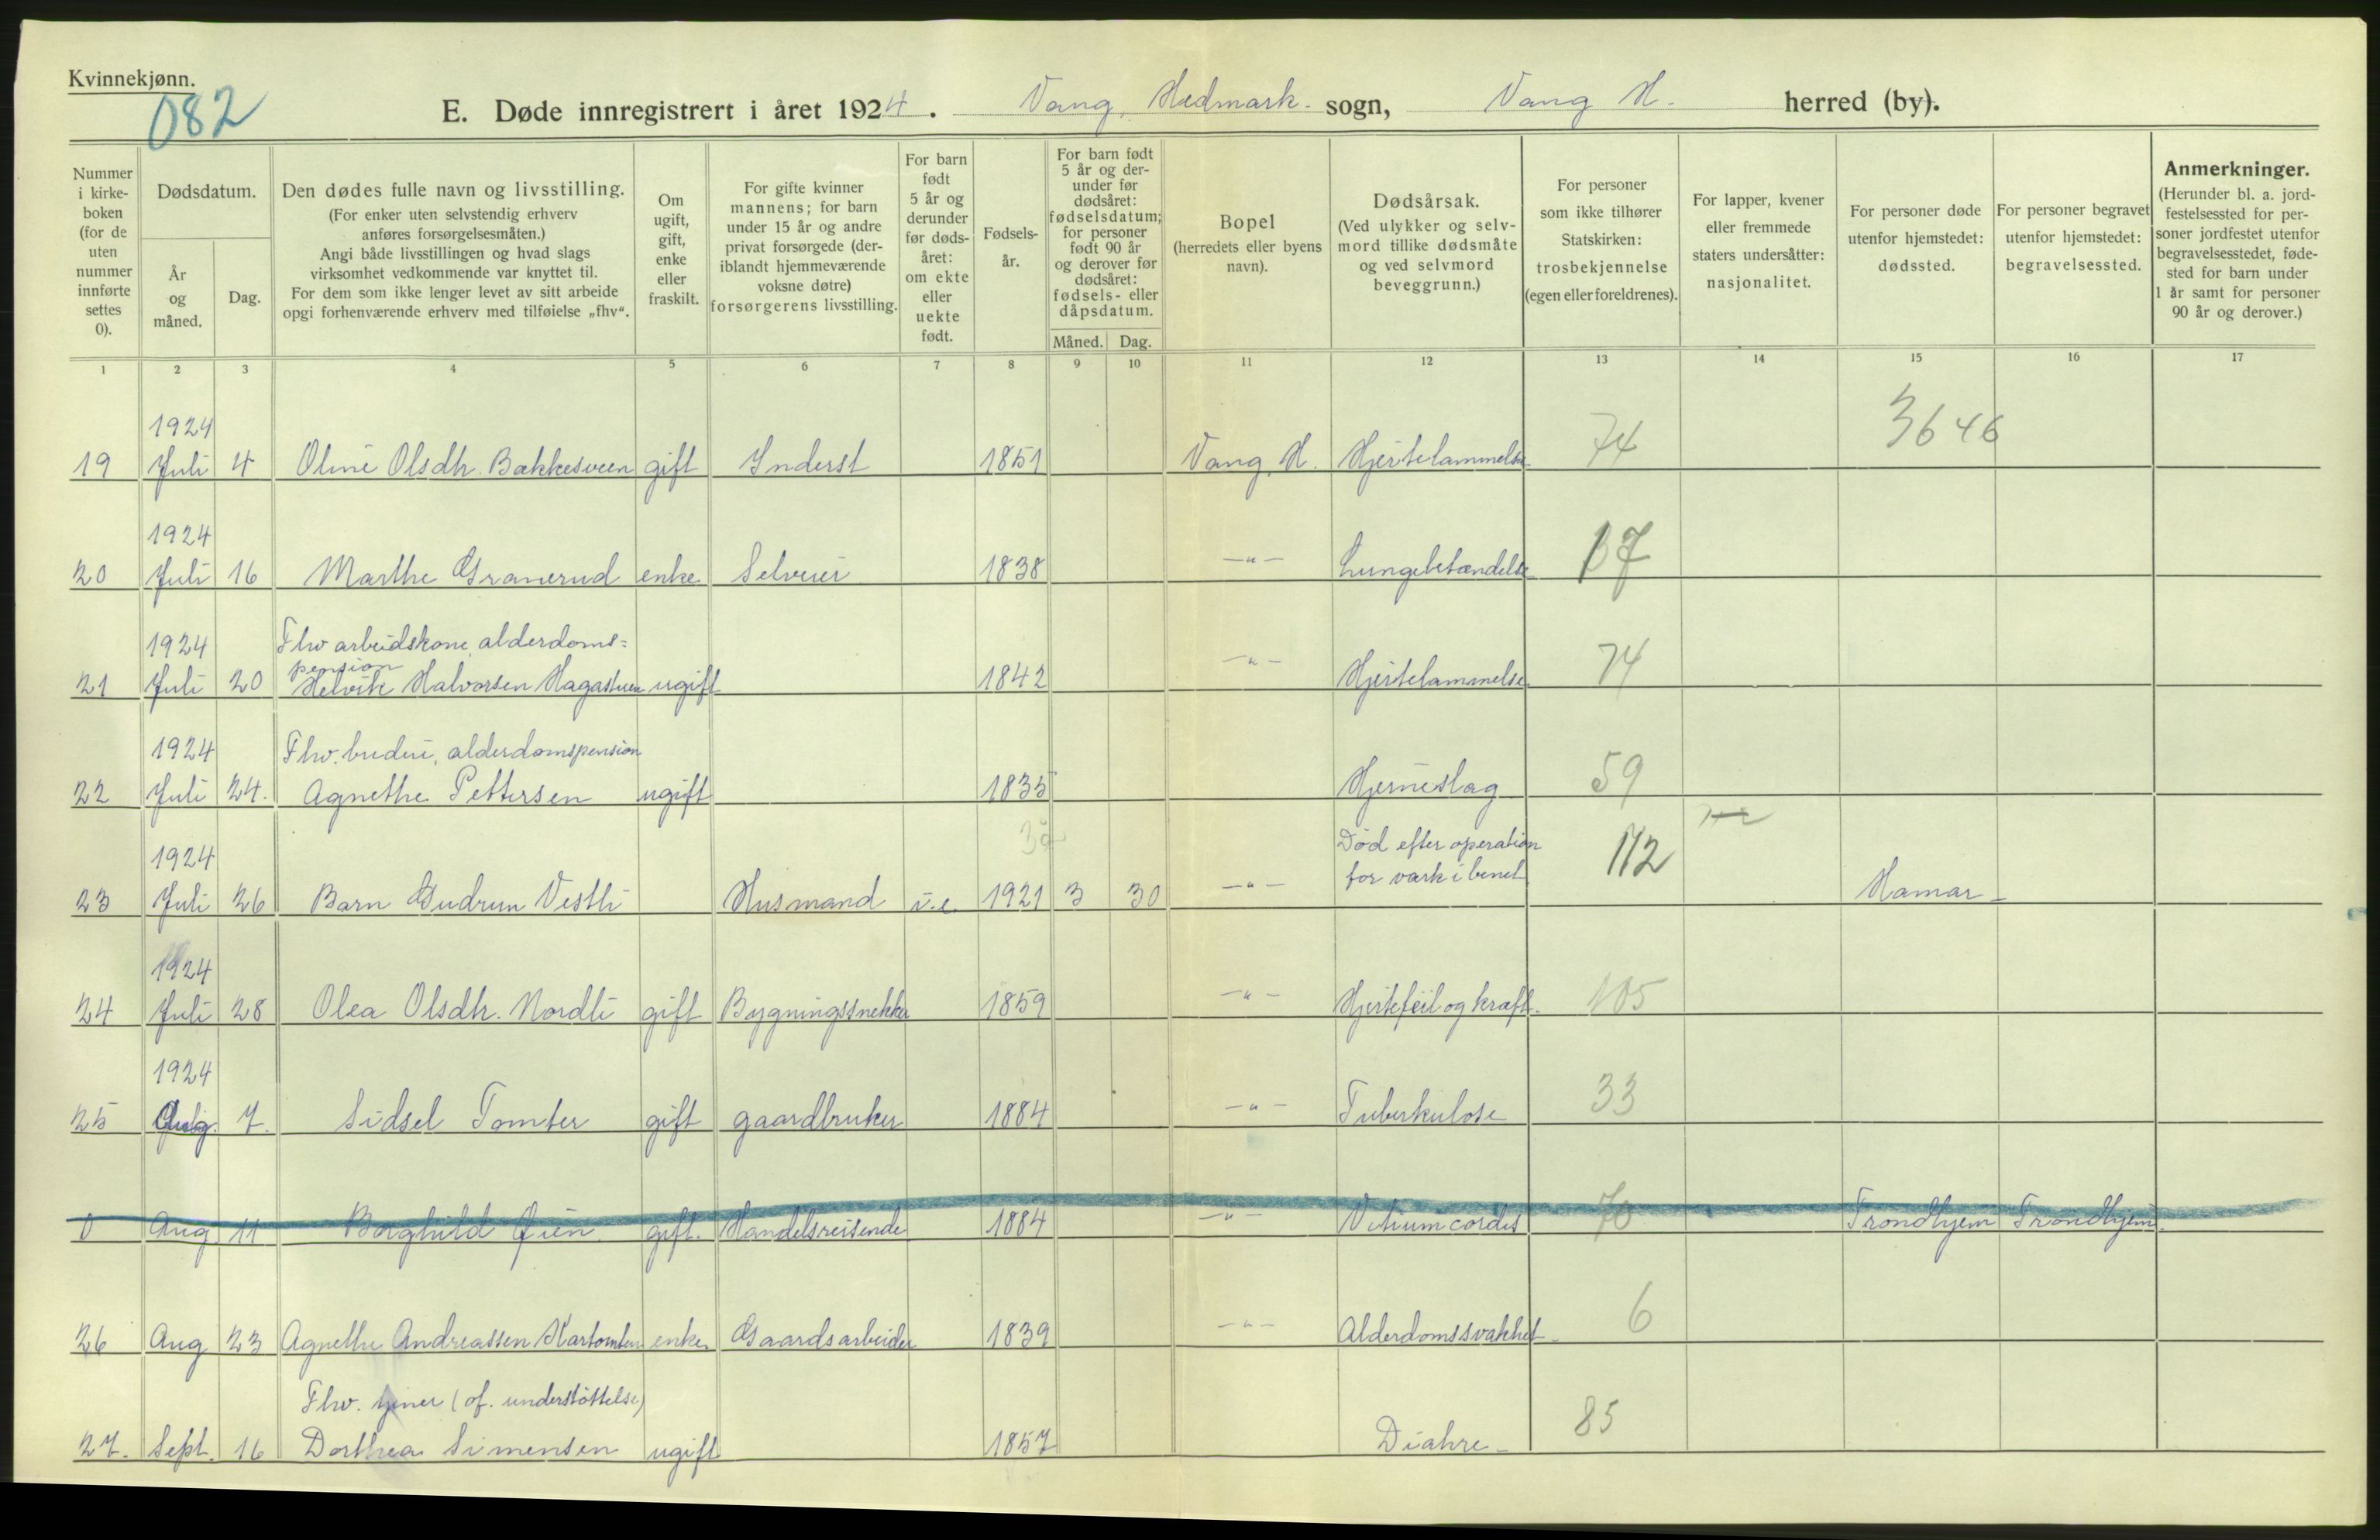 Kvinnekjønn.
082
E. Døde innregistrert i året 1924. Vang, Hedmark. sogn, Vang H. herred (by).
Nummer i kirke-boken (for de uten nummer innførte settes 0).
Dødsdatum.
År og måned.
Dag.
Den dødes fulle navn og livsstilling.
(For enker uten selvstendig erhverv anføres forsørgelsesmåten.)
Angi både livsstillingen og hvad slags virksomhet vedkommende var knyttet til.
For dem som ikke lenger levet av sitt arbeide opgi forhenværende erhverv med tilføielse „fhv“.
Om ugift, gift, enke eller fraskilt.
For gifte kvinner mannens; for barn under 15 år og andre privat forsørgede (deriblandt hjemmeværende voksne døtre) forsørgerens livsstilling.
For barn født 5 år og derunder før dødsåret: om ekte eller uekte født.
Fødsels-år.
For barn født 5 år og derunder før dødsåret: fødselsdatum; for personer født 90 år og derover før dødsåret: fødsels- eller dåpsdatum.
Måned. Dag.
Bopel (herredets eller byens navn).
Dødsårsak.
(Ved ulykker og selvmord tillike dødsmåte og ved selvmord beveggrunn.)
For personer som ikke tilhører Statskirken: trosbekjennelse (egen eller foreldrenes).
For lapper, kvener eller fremmede staters undersåtter: nasjonalitet.
For personer døde utenfor hjemstedet: dødssted.
For personer begravet utenfor hjemstedet: begravelsessted.
Anmerkninger.
(Herunder bl. a. jordfestelsessted for personer jordfestet utenfor begravelsesstedet, fødested for barn under 1 år samt for personer 90 år og derover.)
1 2 3 4 5 6 7 8 9 10 11 12 13 14 15 16 17
1924 3646
19 Juli 4 Oline Olsdtr. Bakkesveen gift Inderst 1851 Vang, H. Hjertelammelse 74
1924
20 Juli 16 Marthe Granerud enke Selveier 1838 -"- Lungebetændelse 17
1924 Fhv arbeidskone, alderdoms=
pension
21 Juli 20 Helvik Halvorsen Hagastuen ugift 1842 -"- Hjertelammelse 74
1924 Fhv. budeie, alderdomspension
22 Juli 24. Agnethe Pettersen ugift 1835 Hjerneslag 59
1924 Død efter operation
for værk i benet 112
23 Juli 26 Barn Gudrun Vestli Husmand i.e. 1921 3 30 -"- Hamar
1924
24 Juli 28 Olea Olsdtr. Nordli gift Bygningssnekker 1859 -"- Hjertefeil og kræft. 105
1924
25 Aug. 7. Sidsel Tomter gift gaardbruker 1884 -"- Tuberkulose 33
0 Aug 11 Borghild Øien gift. Handelsreisende 1884 -"- Vitium cordis 70 Trondhjem Trondhjem.
26 Aug 23 Agnethe Andreassen Kartomten enke Gaardsarbeider 1839 -"- Alderdomssvakhet 6
Fhv. tjener (of. understøttelse)
27. Sept. 16 Dorthea Simensen ugift 1857 Diahre 85